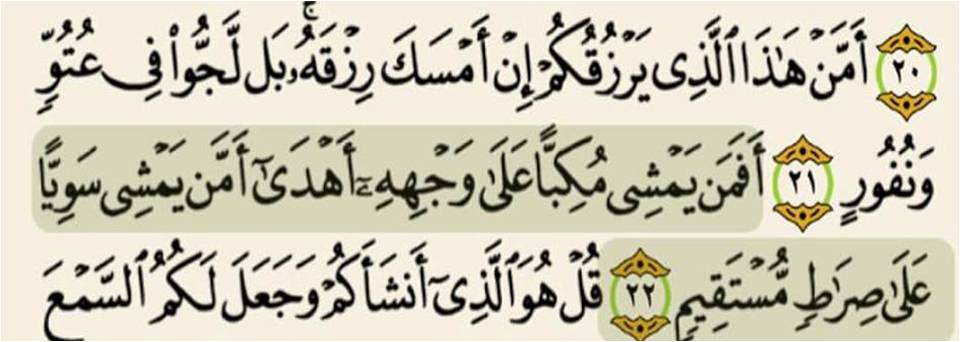 ٢٠ أَمَّنْ هَٰذَا ٱلَّذِى يَرْزُقُكُمْ إِنْ أَمْسَكَ رِزْقَهُۥۚ بَل لَّجُّوا۟ فِى عُتُوٍّ
وَنُفُورٍ ٢١ أَفَمَن يَمْشِى مُكِبًّا عَلَىٰ وَجْهِهِۦٓ أَهْدَىٰٓ أَمَّن يَمْشِى سَوِيًّا
عَلَىٰ صِرَٰطٍ مُّسْتَقِيمٍ ٢٢ قُلْ هُوَ ٱلَّذِىٓ أَنشَأَكُمْ وَجَعَلَ لَكُمُ ٱلسَّمْعَ